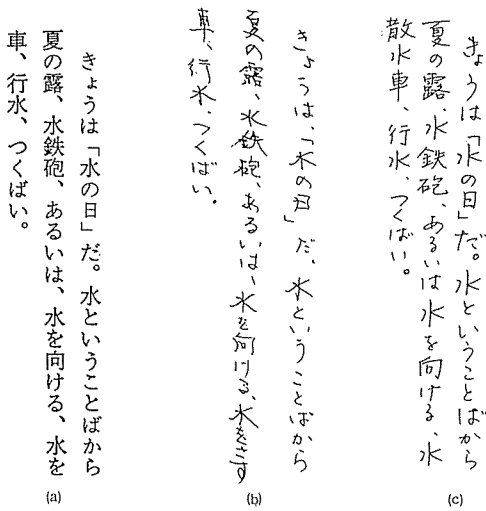 きょうは「水の日」だ。水ということばから
夏の露、水鉄砲、あるいは、水を向ける、水を
車、行水、つくばい。
(a)
きょうは、「水の日」だ、水ということばから
夏の露、水鉄砲、あるいは、水を向ける、水をさす
車、行水、つくばい。
(b)
きょうは「水の日」だ。水ということばから
夏の露、水鉄砲、あるいは水を向ける、水
散水車、行水、つくばい。
(c)